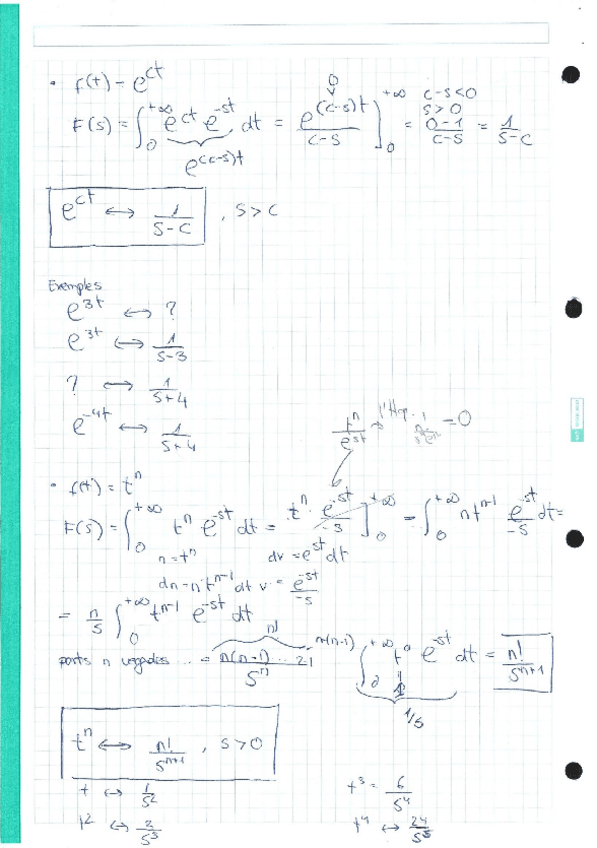 • f(t) = e^{ct}
F(s) = ∫_0^{+∞} e^{ct} e^{-st} dt = e^{(c-s)t}/(c-s) ]_0^{+∞} = (0-1)/(c-s) = 1/(s-c)
e^{(c-s)t}
0
c-s<0
s>0
e^{ct} ↔ 1/(s-c) , s>c
Exemples
e^{3t} ↔ ?
e^{3t} ↔ 1/(s-3)
? ↔ 1/(s+4)
e^{-4t} ↔ 1/(s+4)
t^n/e^{st} → l'Hop. = 0
• f(t) = t^n
F(s) = ∫_0^{+∞} t^n e^{-st} dt = t^n · e^{-st}/(-s) ]_0^{+∞} - ∫_0^{+∞} n t^{n-1} e^{-st}/(-s) dt =
u = t^n dv = e^{-st} dt
du = n t^{n-1} dt v = e^{-st}/(-s)
= n/s ∫_0^{+∞} t^{n-1} e^{-st} dt
n!
parts n vegades ... = n(n-1)...2·1/s^n ∫_0^{+∞} t^0 e^{-st} dt = n!/s^{n+1}
1
1/s
t^n ↔ n!/s^{n+1} , s>0
t ↔ 1/s^2 t^3 = 6/s^4
t^2 ↔ 2/s^3 t^4 ↔ 24/s^5